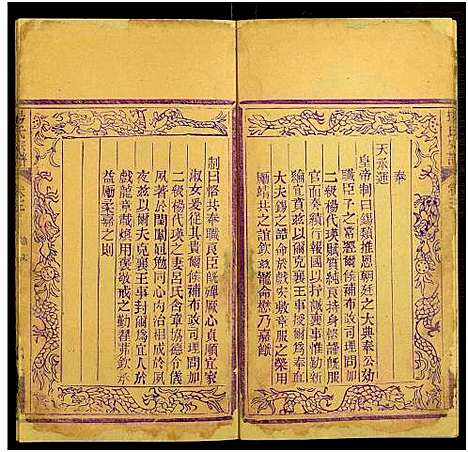 奉
天承運
皇帝制曰錫類推恩朝廷之大典奉公効
職臣子之常經爾候補布政司理問加
二級楊代瑛賦質純良持身恪謹服
官而奏績行報國以抒忱襄事惟勤新
綸宜賁茲以爾克襄王事授爾為宜
大夫錫之誥命於戲宏敷章服之榮用
勵靖共之誼欽茲寵命懋乃嘉猷
制曰恪共奉職良臣既殫厥心貞順宜家
淑女爰從其貴爾候補布政司理問加
二級楊代瑛之妻呂氏含章為德令儀
夙著於閨闈黽勉同心內治相成於夙
夜茲以爾夫克襄王事封爾為宜人於
戲龍章載煥用褒敬戒之勤翟茀欽承
益勵柔嘉之則